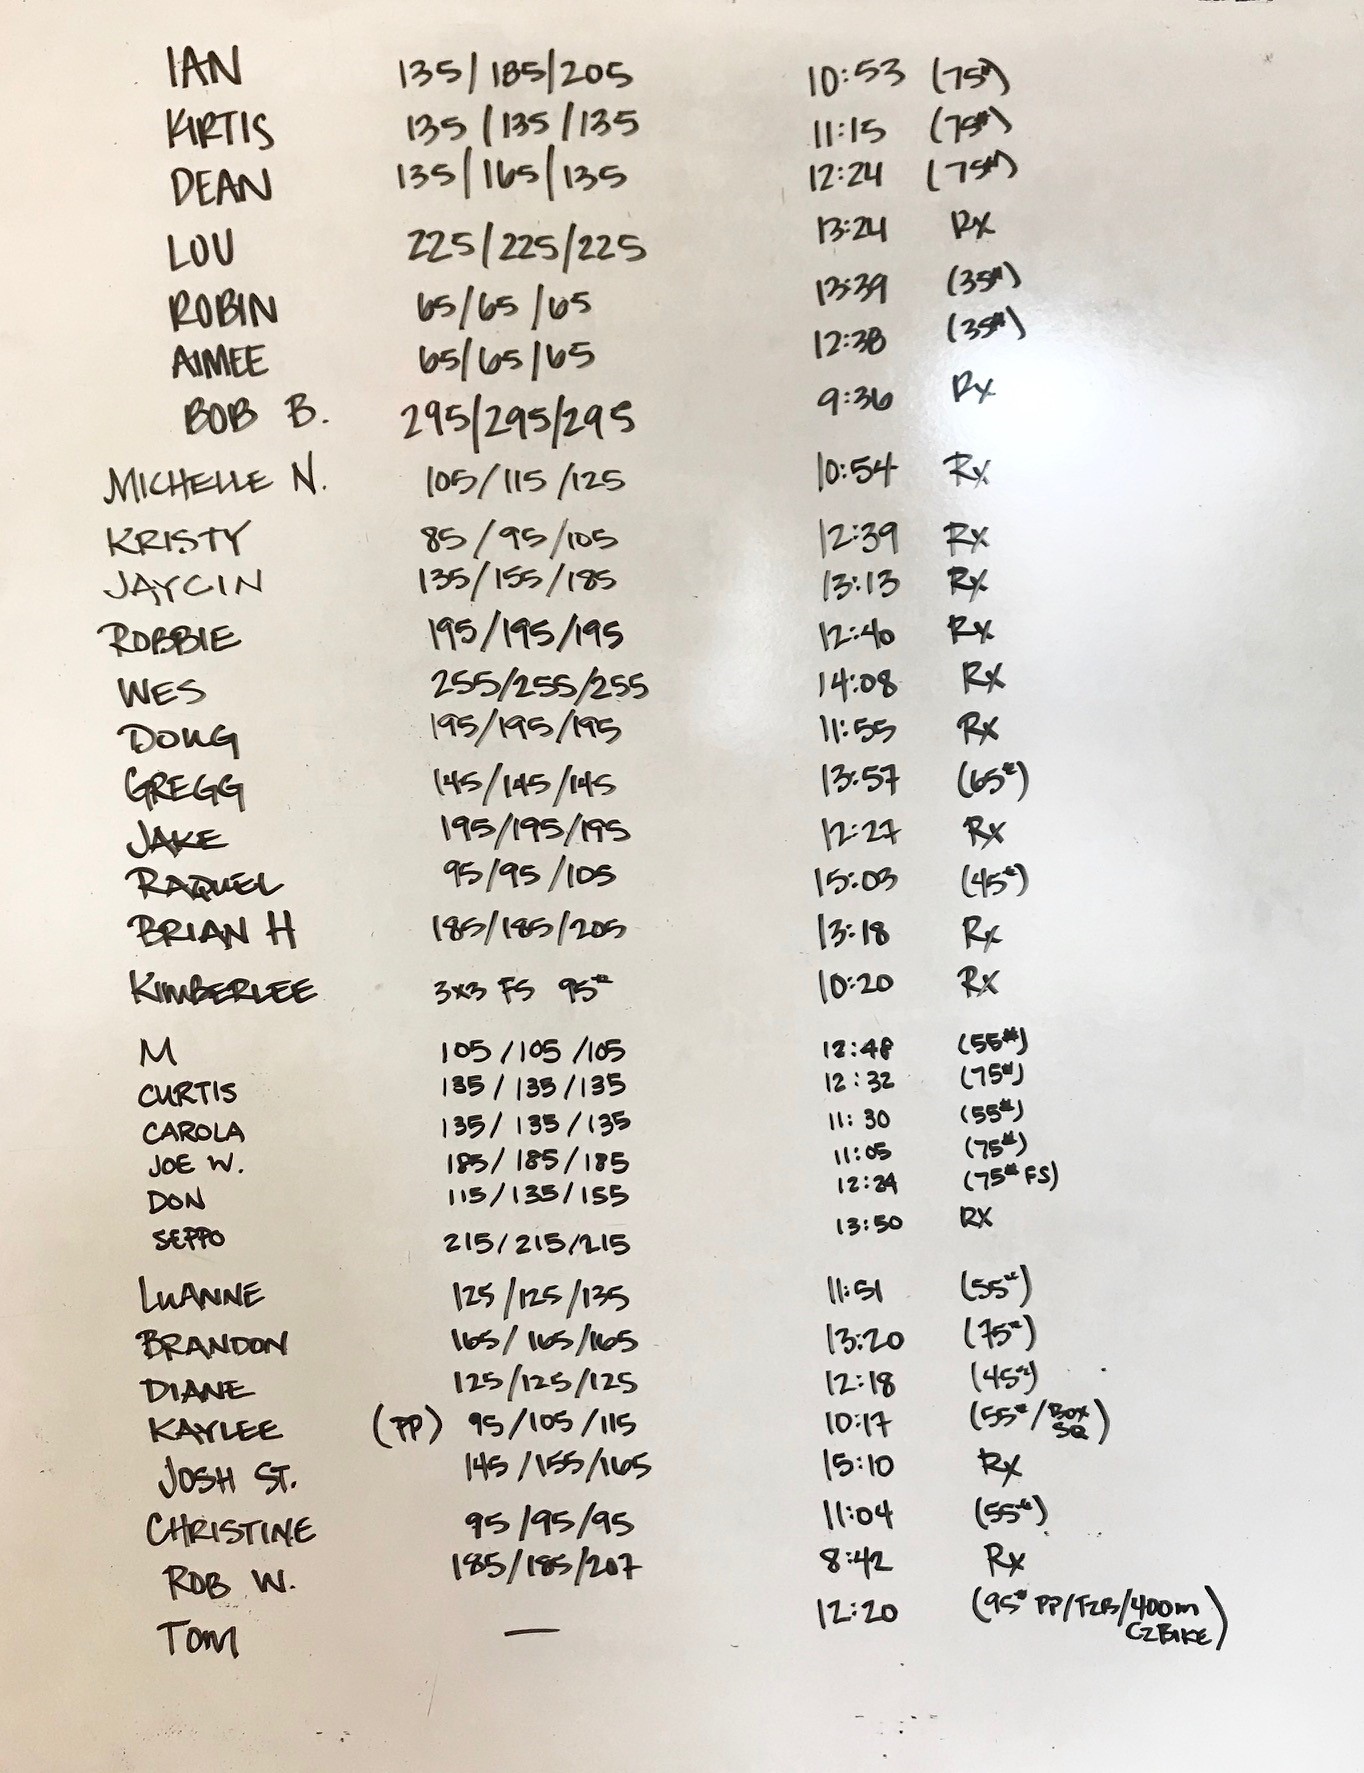 IAN 135/185/205 10:53 (75#)
KIRTIS 135/135/135 11:15 (75#)
DEAN 135/165/135 12:24 (75#)
LOU 225/225/225 13:24 Rx
ROBIN 65/65/65 13:39 (35#)
AIMEE 65/65/65 12:38 (35#)
BOB B. 295/295/295 9:36 Rx
MICHELLE N. 105/115/125 10:54 Rx
KRISTY 85/95/105 12:39 Rx
JAYCIN 135/155/185 13:13 Rx
ROBBIE 195/195/195 12:40 Rx
WES 255/255/255 14:08 Rx
DOUG 195/195/195 11:55 Rx
GREGG 145/145/145 13:57 (65#)
JAKE 195/195/195 12:27 Rx
RAQUEL 95/95/105 15:03 (45#)
BRIAN H 185/185/205 13:18 Rx
KIMBERLEE 3x3 FS 95# 10:20 Rx
M 105/105/105 12:48 (55#)
CURTIS 135/135/135 12:32 (75#)
CAROLA 135/135/135 11:30 (55#)
JOE W. 185/185/185 11:05 (75#)
DON 115/135/155 12:24 (75# FS)
SEPPO 215/215/215 13:50 RX
LUANNE 125/125/135 11:51 (55#)
BRANDON 165/165/165 13:20 (75#)
DIANE 125/125/125 12:18 (45#)
KAYLEE (PP) 95/105/115 10:17 (55#/BOX SQ)
JOSH ST. 145/155/165 15:10 Rx
CHRISTINE 95/95/95 11:04 (55#)
ROB W. 185/185/207 8:42 Rx
TOM — 12:20 (95# PP/T2B/400m
C2BIKE)